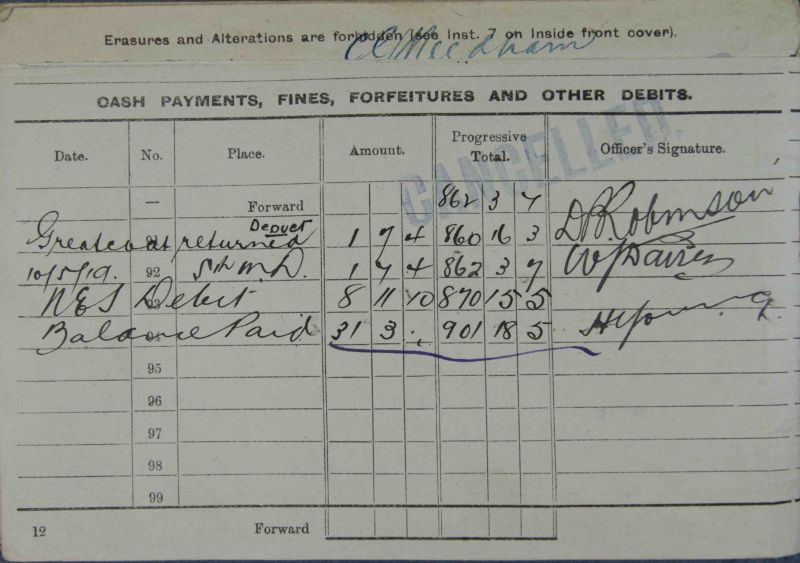 Erasures and Alterations are forbidden (see Inst. 7 on inside front cover).
CASH PAYMENTS, FINES, FORFEITURES AND OTHER DEBITS.
CANCELLED.
Date. No. Place. Amount. Progressive Total. Officer's Signature.
— Forward 862 3 7
Greatcoat returned 91 1 7 4 860 16 3 D. Robinson
10/5/19. 92 5th M.D. 1 7 4 862 3 7
NES Debit 8 11 10 870 15 5
Balance Paid 31 3 . 901 18 5 H Young
95
96
97
98
99
12 Forward